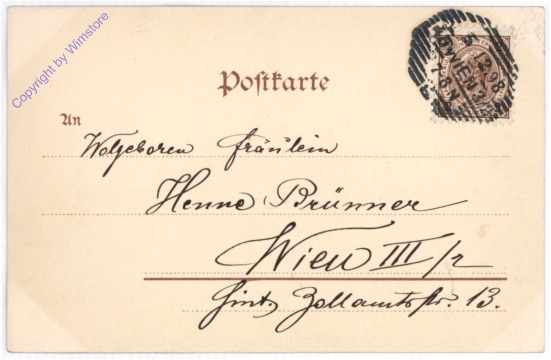 Copyright by Wimstore
Postkarte
5.12.98
WIEN
7-8 N
An
Wolgeboren Fräulein
Henne Brünner
Wien III/2
Hint. Zollamtsstr. 13.